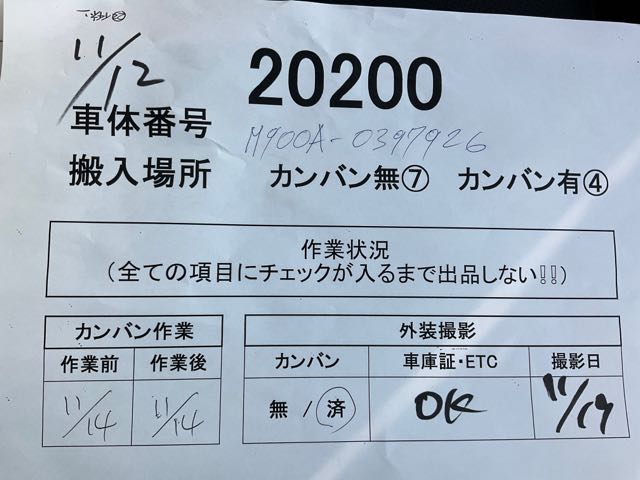 11/12
20200
車体番号 M900A-0397926
搬入場所 カンバン無⑦ カンバン有④
作業状況
(全ての項目にチェックが入るまで出品しない!!)
カンバン作業
作業前 作業後
11/14 11/14
外装撮影
カンバン 車庫証・ETC 撮影日
無 / 済 OK 11/19